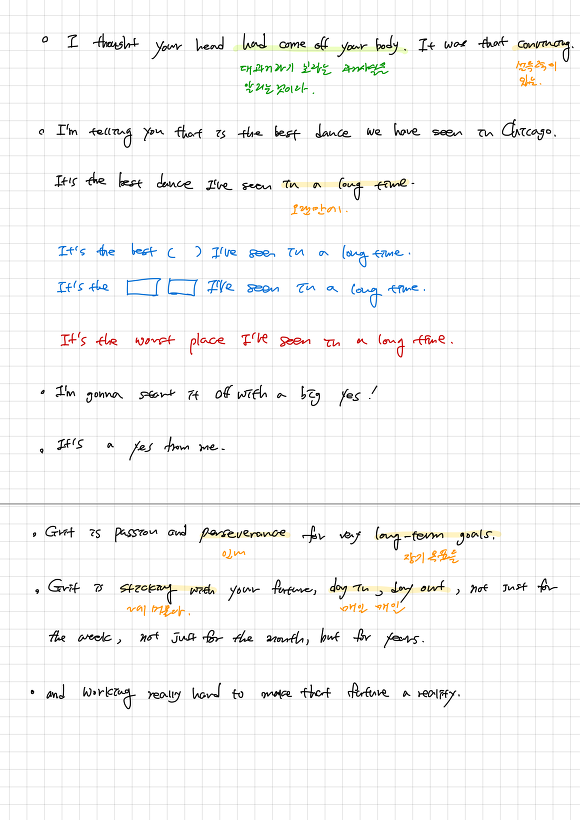 I thought your head had come off your body. It was that convincing.
대과거라기 보다는
설득력이
알리는 것이다.
있는.
I'm telling you that is the best dance we have seen in Chicago.
It's the best dance I've seen in a long time.
오랜만에.
It's the best ( ) I've seen in a long time.
It's the I've seen in a long time.
It's the worst place I've seen in a long time.
I'm gonna start it off with a big yes!
It's a yes from me.
Grit is passion and perseverance for very long-term goals.
인내 장기 목표들
Grit is sticking with your future, day in, day out, not just for
매일 매일
the week, not just for the month, but for years.
and working really hard to make that future a reality.